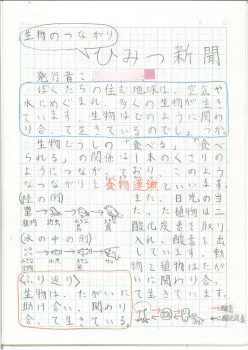 生物のつながり
ひみつ新聞
発行者:
ぼくたちの住む地球は、空気や
水にめぐまれ、多くの生物が生き
ています。生物はどのように関わ
り合って生きているのでしょうか。
生物どうしの「食べる」「食べ
られる」の関係は1本のくさりの
ようにつながっており、このよう
なつながりを食物連鎖といいます。
(陸の例)
植物
(水の中の例)
また、日光の当
たった植物は二
酸化炭素を取り
入れ、酸素を出
しています。動
物と植物はたが
いに関わり合っ
て生きています。
ふり返り
生物は、たがいに
助け合い、関わり
合って生きている。
酸素
二酸化炭素